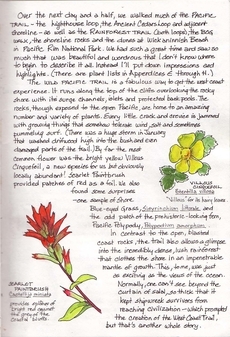 Over the next day and a half, we walked much of the PACIFIC
TRAIL - the lighthouse loop, the Ancient Cedars Loop and adjacent
shoreline - as well as the RAINFOREST TRAIL (both loops), the Bog
walk, the shoreline rocks and the dunes at Wickaninnish Beach
in Pacific Rim National Park. We had such a great time and saw so
much that was beautiful and wonderous that I don't know where
to begin to describe it all. Instead I'll put down impressions and
highlights. (There are plant lists in Appendices
The WILD PACIFIC TRAIL is a fabulous way to get the west coast
experience. It runs along the top of the cliffs overlooking the rocky
shore with its surge channels, islets and protected beach pools. The
rocks, though exposed to the open Pacific, are home to an amazing
number and variety of plants. Every little crack and crevice is jammed
with growing things that somehow tolerate wind, salt and sometimes
pummeling surf. (There was a huge storm in January
that washed driftwood high into the bush and even
damaged parts of the trail.) By far the next
common flower was the bright yellow Villous
Cinquefoil, a new species for us but obviously
locally abundant! Scarlet Paintbrush
provided patches of red as a foil. We also
found some surprises
- one example of shore
Blue-eyed Grass, Sisyrinchium littorale, and
the odd patch of the prehistoric-looking fern,
Pacific Polypody, Polypodium amorphum.
In contrast to the open, blasted
coast rocks, the trail also allows a glimpse
into the incredibly dense, lush rainforest
that clothes the shore in an impenetrable
mantle of growth. This, to me, was just
as exciting as the views of the ocean.
Normally, one can't see beyond the
curtain of salal, so thick that it
kept shipwreck survivors from
reaching civilization - which prompted
the creation of the West Coast Trail,
but that's another whole story.
VILLOUS
CINQUEFOIL
Potentilla villosa
"Villous" for its hairy leaves
SCARLET
PAINTBRUSH
Castilleja miniata
provides splashes of
bright red against
the gray of the
coastal bluffs.